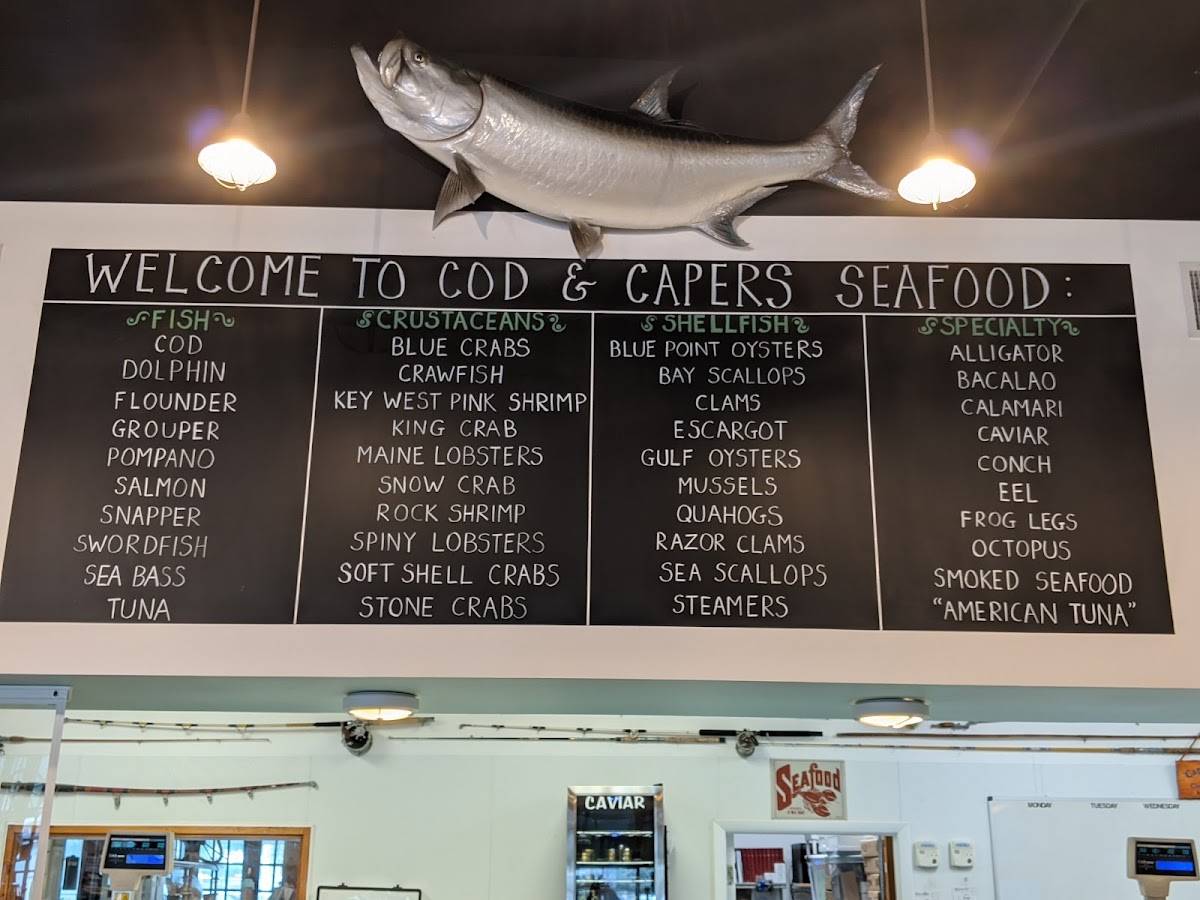 WELCOME TO COD & CAPERS SEAFOOD:
FISH
COD
DOLPHIN
FLOUNDER
GROUPER
POMPANO
SALMON
SNAPPER
SWORDFISH
SEA BASS
TUNA
CRUSTACEANS
BLUE CRABS
CRAWFISH
KEY WEST PINK SHRIMP
KING CRAB
MAINE LOBSTERS
SNOW CRAB
ROCK SHRIMP
SPINY LOBSTERS
SOFT SHELL CRABS
STONE CRABS
SHELLFISH
BLUE POINT OYSTERS
BAY SCALLOPS
CLAMS
ESCARGOT
GULF OYSTERS
MUSSELS
QUAHOGS
RAZOR CLAMS
SEA SCALLOPS
STEAMERS
SPECIALTY
ALLIGATOR
BACALAO
CALAMARI
CAVIAR
CONCH
EEL
FROG LEGS
OCTOPUS
SMOKED SEAFOOD
"AMERICAN TUNA"
SEAfOOd
CAVIAR
MONDAY TUESDAY WEDNESDAY